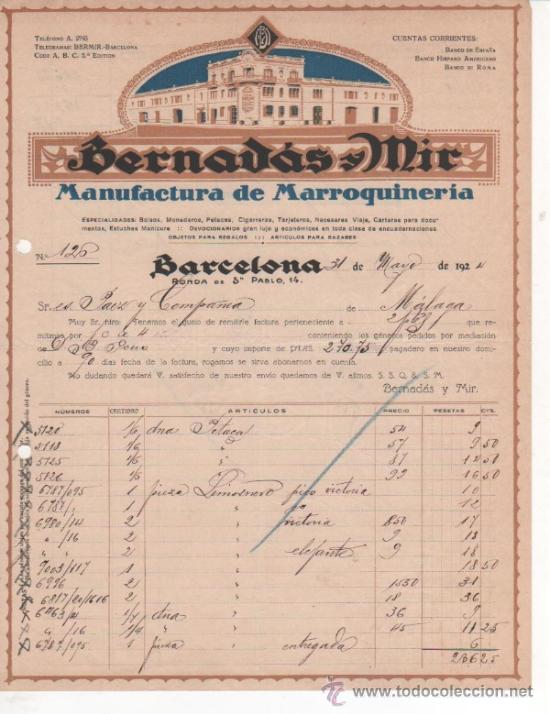 TELÉFONO A. 2785
TELEGRAMAS: BERMIR.-BARCELONA
CODE A. B. C. 5.ª EDITION
CUENTAS CORRIENTES:
BANCO DE ESPAÑA
BANCO HISPANO AMERICANO
BANCO DI ROMA
Bernadás y Mir
Manufactura de Marroquinería
ESPECIALIDADES: Bolsos, Monederos, Petacas, Cigarreras, Tarjeteros, Necesares Viaje, Carteras para docu-
mentos, Estuches Manicure :: DEVOCIONARIOS gran lujo y económicos en toda clase de encuadernaciones
OBJETOS PARA REGALOS ::: ARTICULOS PARA BAZARES
N.º 126
Barcelona 31 de Mayo de 1924
RONDA DE Sn PABLO, 14.
Sres. Paez y Compania de Malaga
Muy Sr. ntro: Tenemos el gusto de remitirle factura perteneciente a que re-
mitimos por conteniendo los géneros pedidos por mediación
de D. B. Peña y cuyo importe de ptas. 270,75 pagadero en nuestro domicili-
o a 90 dias fecha de la factura, rogamos se sirva abonarnos en cuenta.
No dudando quedará V. satisfecho de nuestro envío quedamos de V. atmos. S. S. Q. B. S. M.
Bernadás y Mir.
NÚMEROS ARTICULOS PRECIO PESETAS CTS.
5120 1/6 dna Petaca 54 9
5118 1/6 " 57 9 50
5125 1/6 " 87 14 50
5126 1/6 " 99 16 50
6787/095 1 pieza Limosnero pigo victoria 10
1 " 12
6980/14 2 " victoria 850 17
" /16 2 " 9 18
2 " elefante 9 18
7003/117 1 " 18 50
6996 2 " 1550 31
2 " 18 36
1/4 dna " 36 9
" 16 1/4 " 45 11 25
6787/095 1 pieza entregada 6
236 25
www.todocoleccion.net